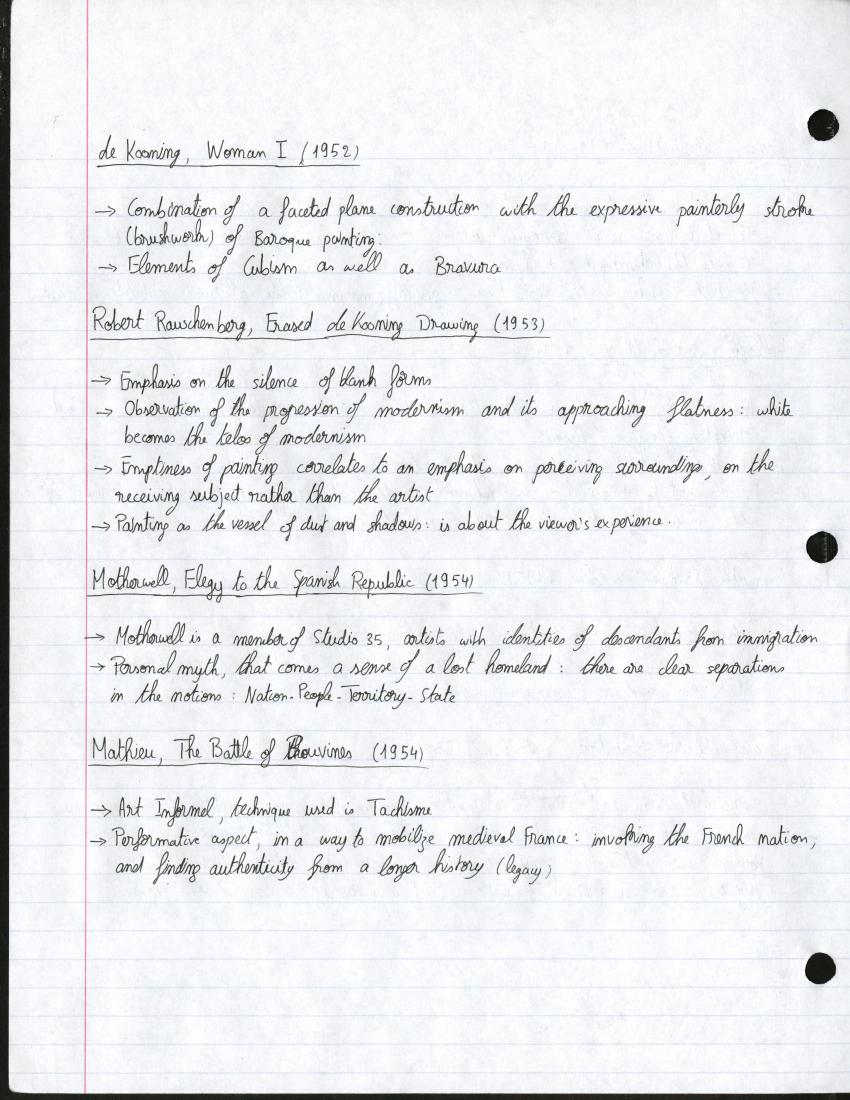 de Kooning, Woman I (1952)
→ Combination of a faceted plane construction with the expressive painterly stroke
(brushwork) of Baroque painting.
→ Elements of Cubism as well as Bravura
Robert Rauschenberg, Erased de Kooning Drawing (1953)
→ Emphasis on the silence of blank forms
→ Observation of the progression of modernism and its approaching flatness: white
becomes the telos of modernism
→ Emptiness of painting correlates to an emphasis on perceiving surroundings, on the
receiving subject rather than the artist
→ Painting as the vessel of dust and shadows: is about the viewer's experience.
Motherwell, Elegy to the Spanish Republic (1954)
→ Motherwell is a member of Studio 35, artists with identities of descendants from immigration
→ Personal myth, that comes a sense of a lost homeland: there are clear separations
in the notions: Nation-People-Territory-State
Mathieu, The Battle of Bouvines (1954)
→ Art Informel, technique used is Tachisme
→ Performative aspect, in a way to mobilize medieval France: invoking the French nation,
and finding authenticity from a longer history (legacy)